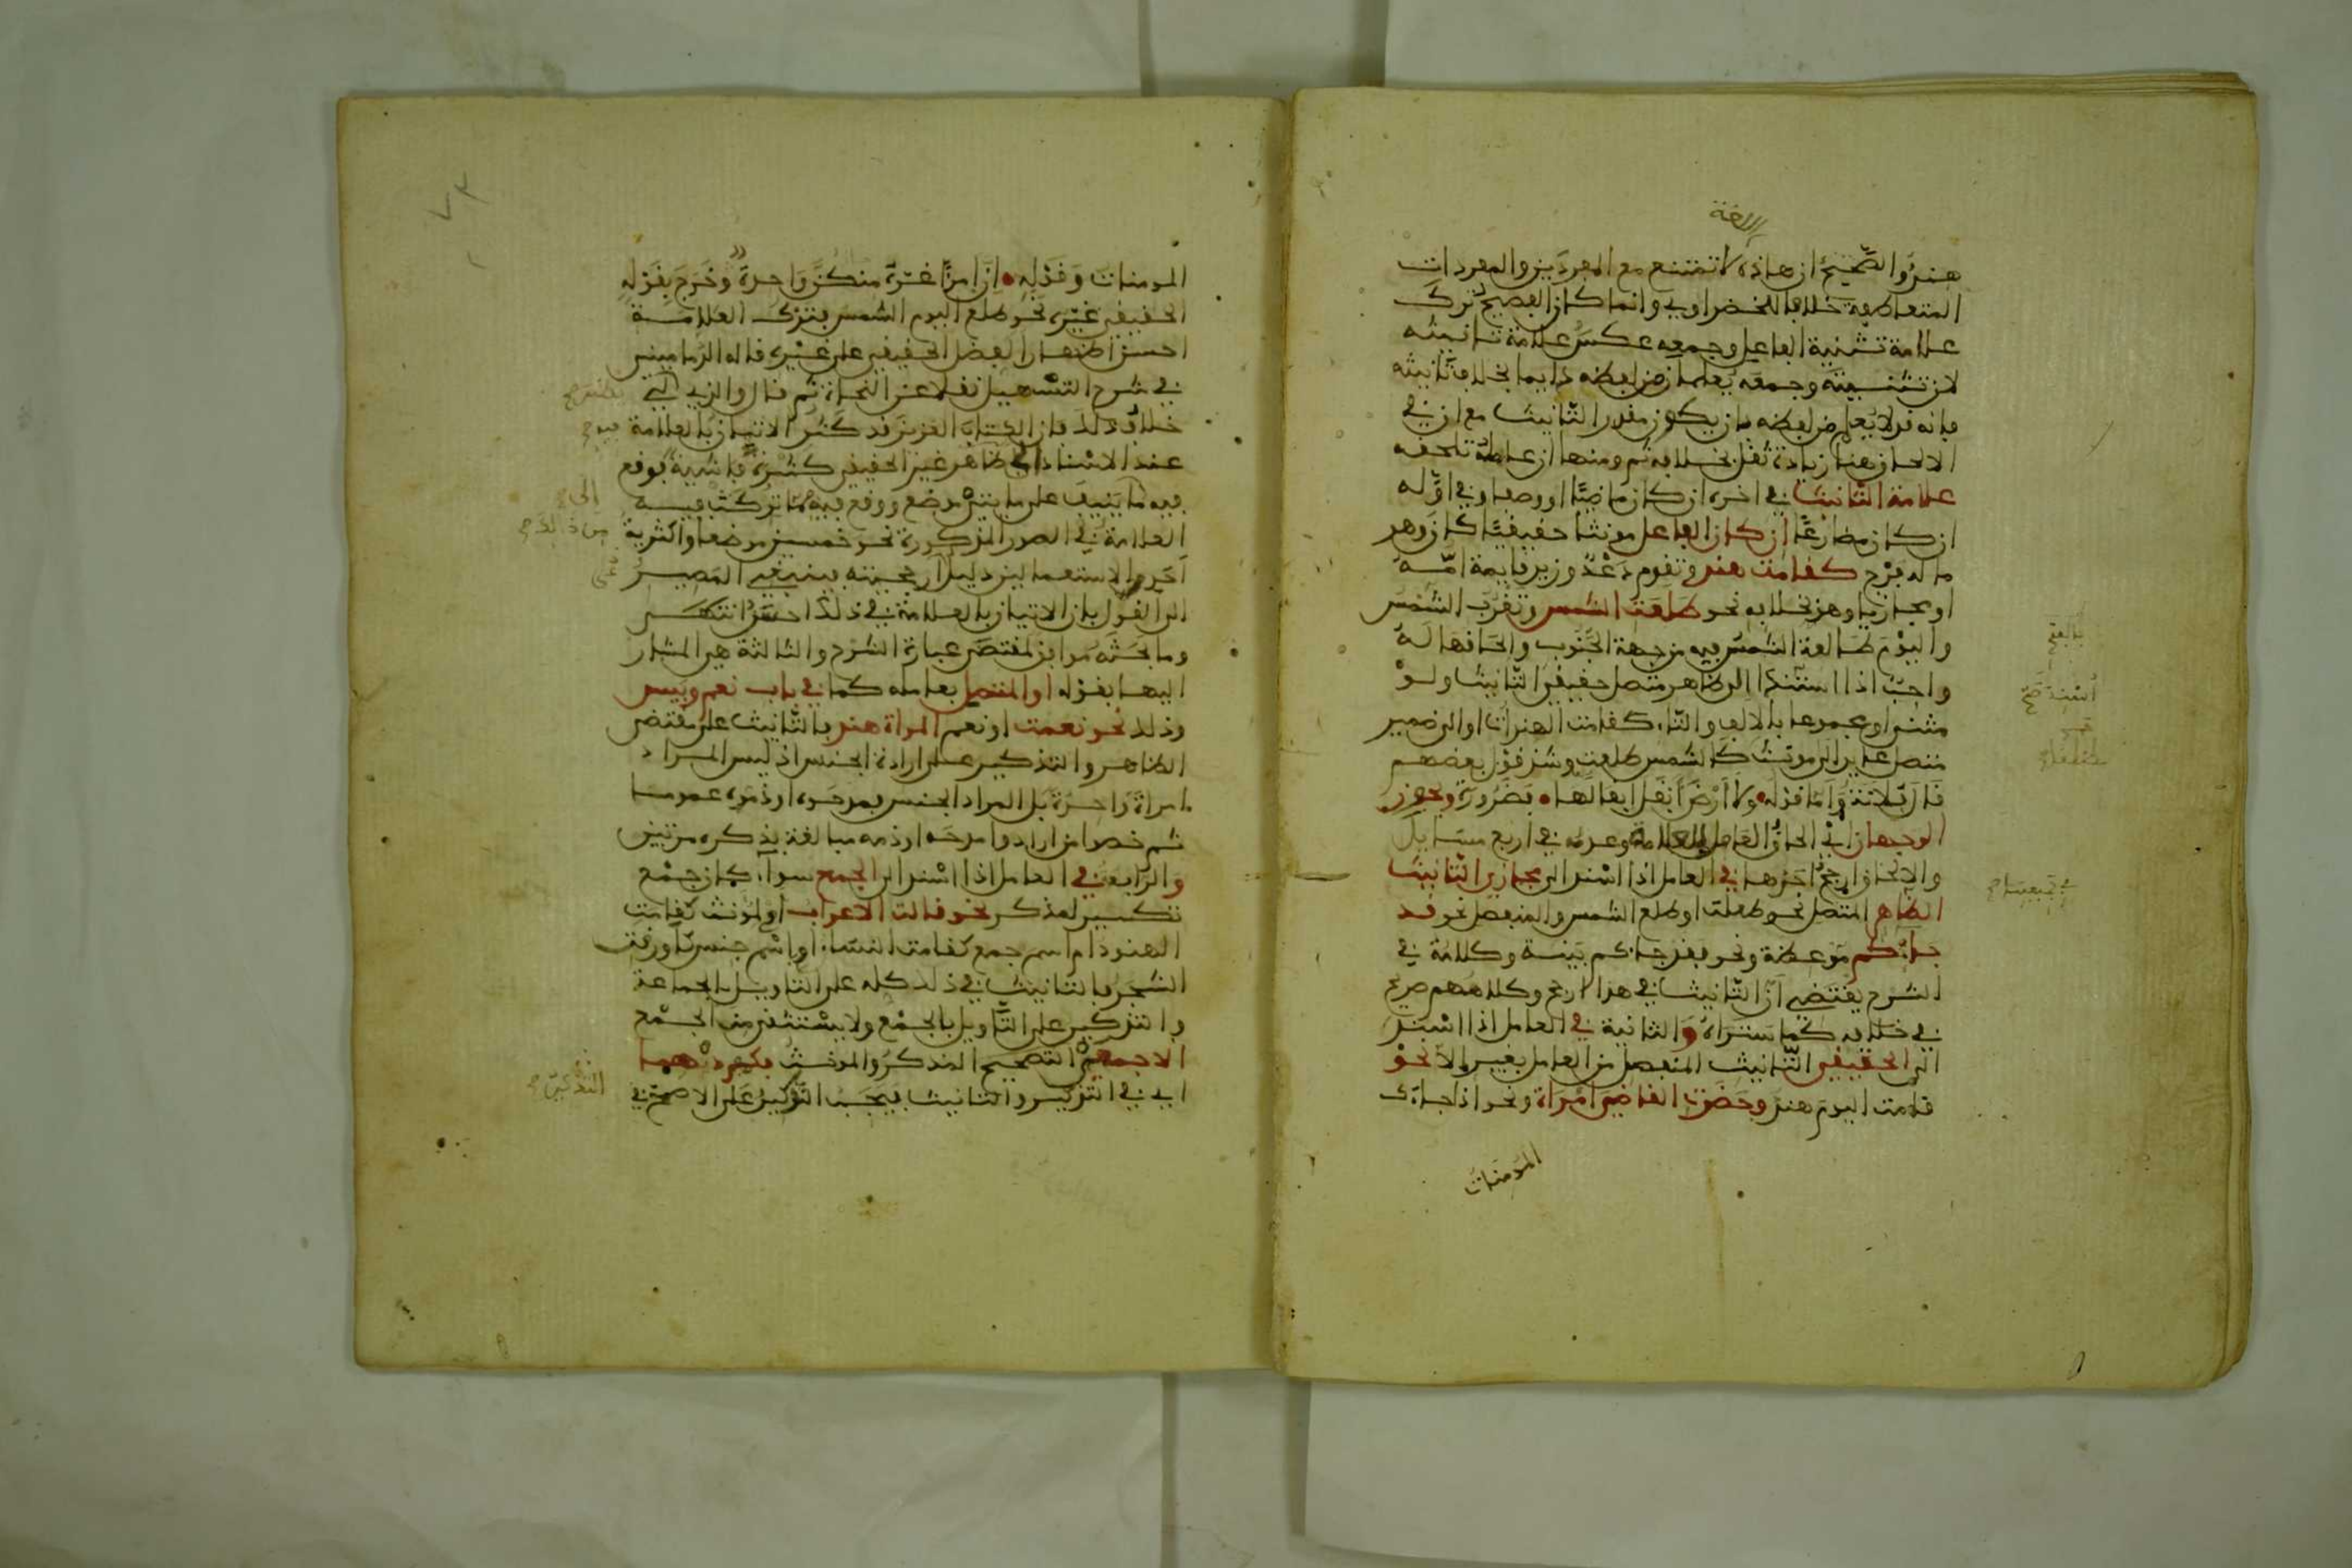 اللغة
هند والصحيح ان هاذه لا تمتنع مع المفردين والمفردات
المتعاطفة خلافا للخضراوي وانما كان الفصيح ترك
علامة تثنية الفاعل وجمعه عكس علامة تانيثه
لان تثنيته وجمعه يعلمان من لفظه دايما بخلاف تانيثه
فانه قد لا يعلم من لفظه بان يكون مقدر التانيث مع ان في
الالحاق هنا زيادة ثقل بخلافه ثم ومنها ان عامله تلحقه
علامة التانيث في اخره ان كان ماضيا او وصفا وفي اوله
ان كان مضارعا ان كان الفاعل مونثا حقيقيا كان وهو
ما له فرج كقامت هند وتقوم دعد وزيد قايمة امه
او مجازيا وهو بخلافه نحو طلعت الشمس وتغرب الشمس
واليوم طالعة الشمس فيه من جهة الجنوب والحاقها له
واجب اذا اسند الى ظاهر متصل حقيقي التانيث ولو
مثنى او مجموعا بالالف والتاء كقامت الهندات او الى ضمير
متصل عايد الى مونث كالشمس طلعت وشذ قول بعضهم
قال فلانة واما قوله ولا ارض ابقل ابقالها فضرورة ويجوز
الوجهان اي الحاق العامل العلامة وعدمه في اربع مسايل
والالحاق ارجح احدها في العامل اذا اسند الى مجازي التانيث
الظاهر المتصل نحو طلعت او طلع الشمس والمنفصل نحو قد
جاءتكم موعظة ونحو فقد جاءكم بينة وكلامه في
الشرح يقتضي ان التانيث في هذا ارجح وكلامهم صريح
في خلافه كما ستراه والثانية في العامل اذا اسند
الى الحقيقي التانيث المنفصل من العامل بغير الا نحو
قامت اليوم هند وحضرت القاضي امراة ونحو اذا جاءك
المومنات
بالفتح
اسند صح
المومنات وقوله ان امرا غره منكن واحدة وخرج بقوله
الحقيقي غيره نحو طلع اليوم الشمس بترك العلامة
احسن اظهارا لفضل الحقيقي على غيره قاله الدماميني
في شرح التسهيل نقلا عن النحاة ثم قال والذي
خلاف ذلك فان الكتاب العزيز قد كثر الاتيان بالعلامة
عند الاسناد الى ظاهر غير الحقيقي كثرة فاشية فوقع
فيه ما ينيف على مايتي موضع ووقع فيه مما تركت فيه
العلامة في الصور المذكورة نحو خمسين موضعا واكثرية
احد الاستعمالين دليل ارجحيته فينبغي المصير
الى القول بان الاتيان بالعلامة في ذلك احسن انتهى
وما بحثه موافق لمقتضى عبارة الشرح والثالثة هي المشار
اليها بقوله او المتصل بعامله كما في باب نعم وبيس
وذلك نحو نعمت او نعم المراة هند بالتانيث على مقتضى
الظاهر والتذكير على ارادة الجنس اذ ليس المراد
امراة واحدة بل المراد الجنس فمدحوه او ذموه عموما
ثم خصوا من ارادوا مدحه او ذمه مبالغة بذكره مرتين
والرابعة في العامل اذا اسند الى الجمع سواء كان جمع
تكسير لمذكر نحو قالت الاعراب او لمونث كقامت
الهنود ام اسم جمع كقامت النساء او اسم جنس كاورقت
الشجر فالتانيث في ذلك كله على التاويل بالجماعة
والتذكير على التاويل بالجمع ولا يستثنى من الجمع
الا جمعي التصحيح المذكر والمونث فكمفرديهما
اي في التذكير والتانيث فيجب التذكير على الاصح في
الى
من ذلك
التذكير